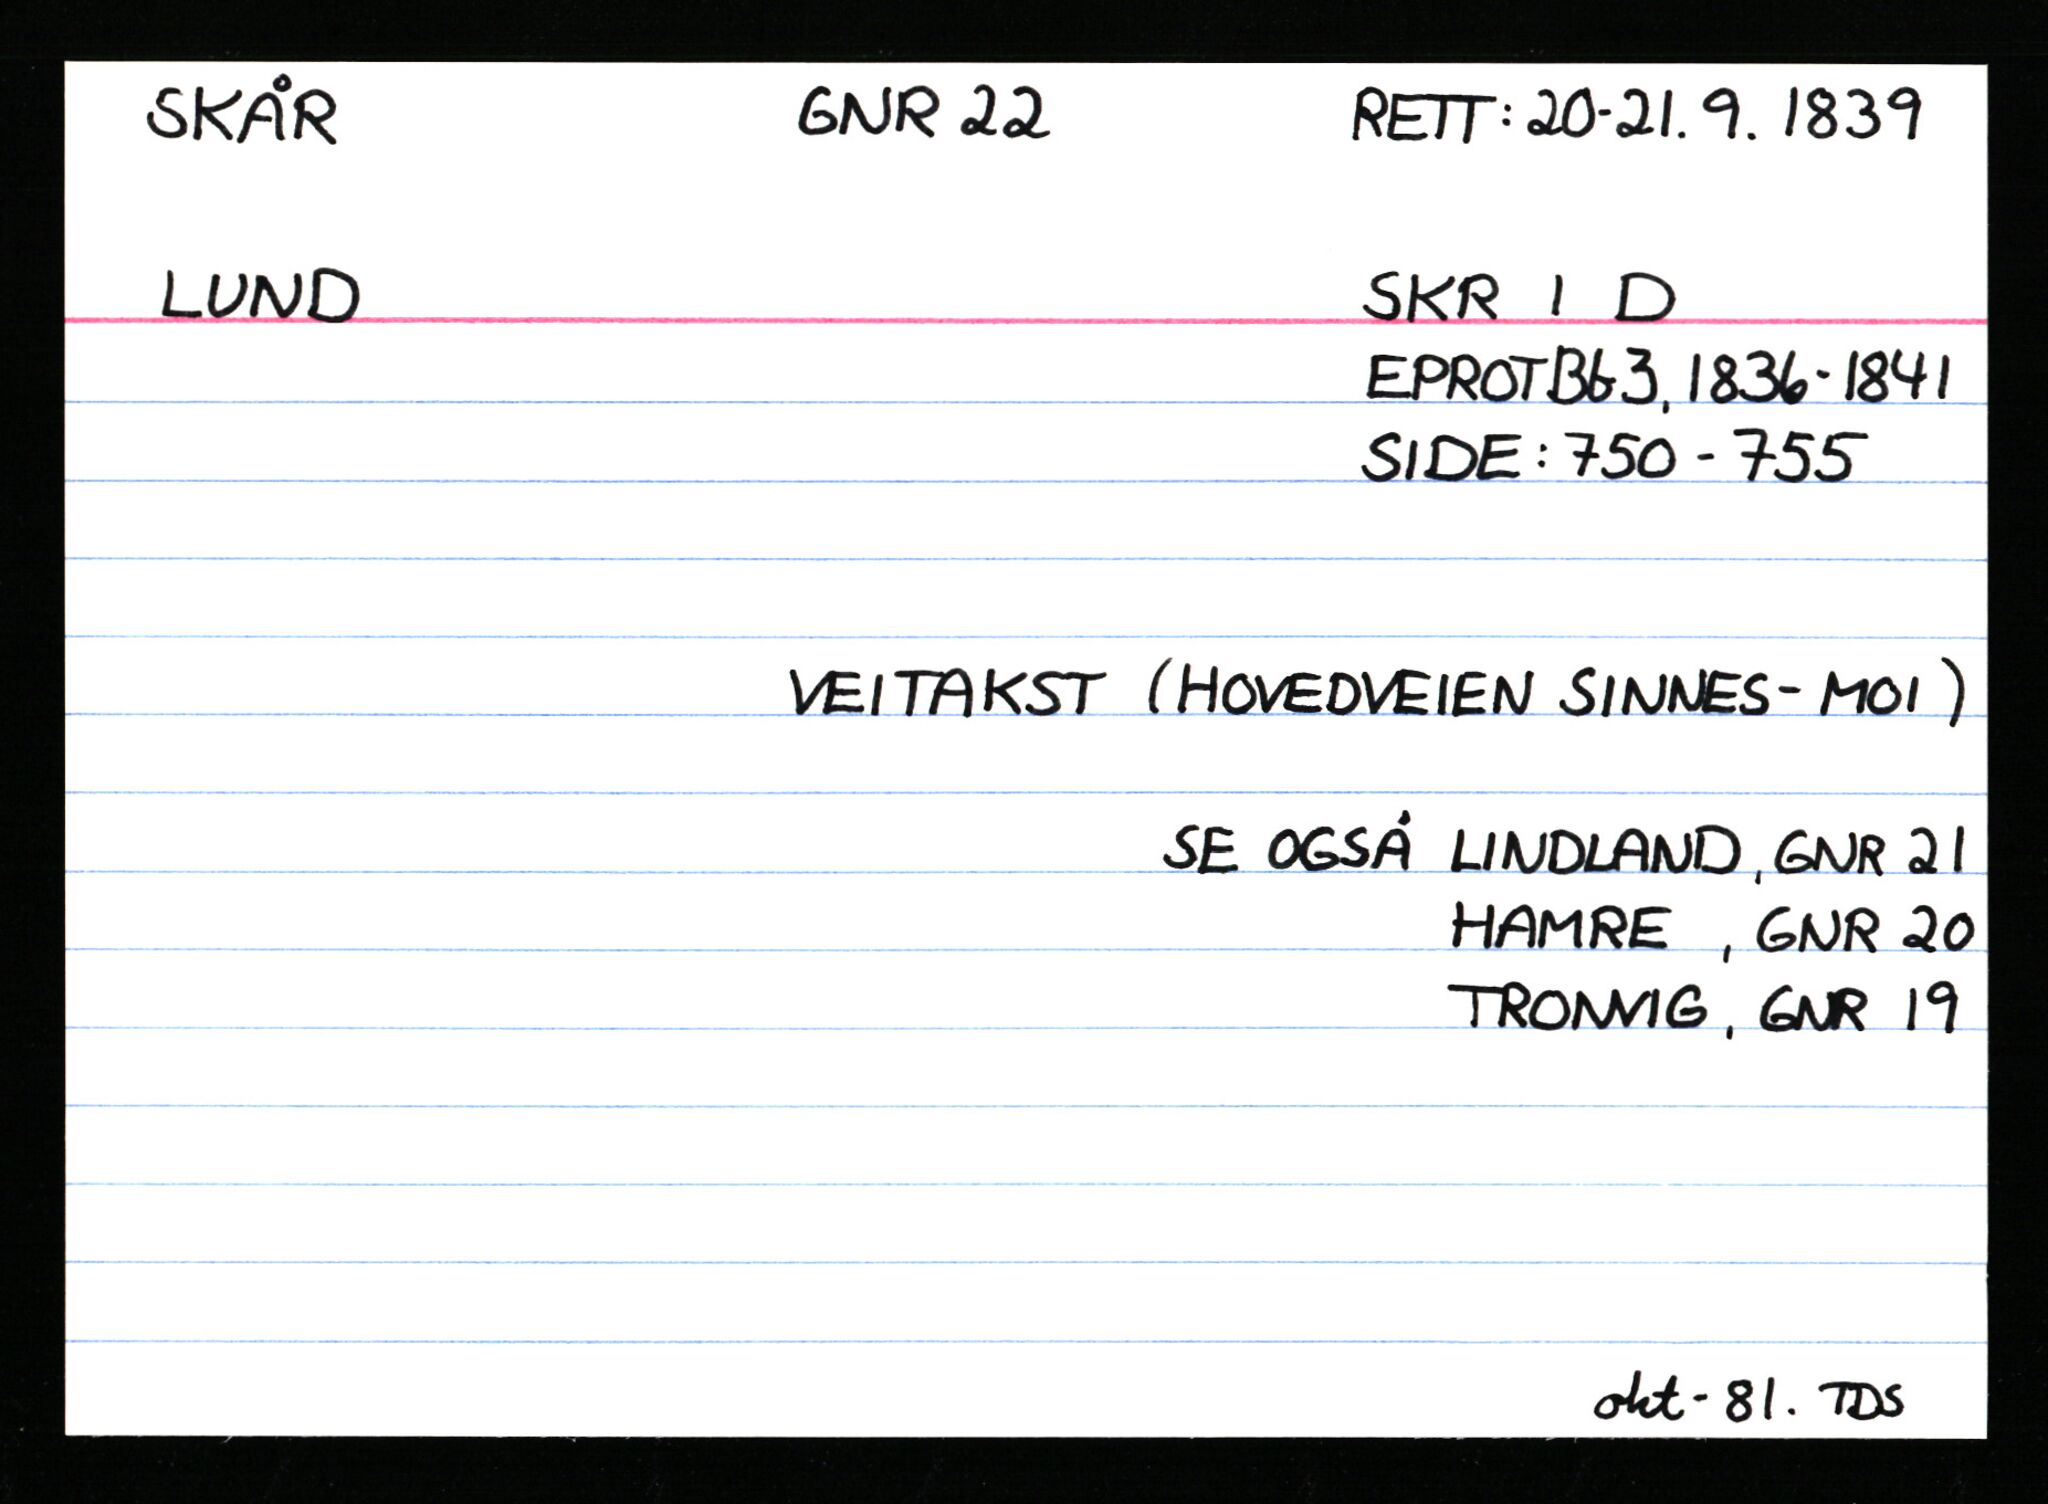 SKÅR GNR 22 RETT: 20-21. 9. 1839
LUND SKR I D
EPROTBb3, 1836-1841
SIDE: 750 - 755
VEITAKST (HOVEDVEIEN SINNES-MOI)
SE OGSÅ LINDLAND, GNR 21
HAMRE , GNR 20
TRONVIG, GNR 19
okt-81. TDS